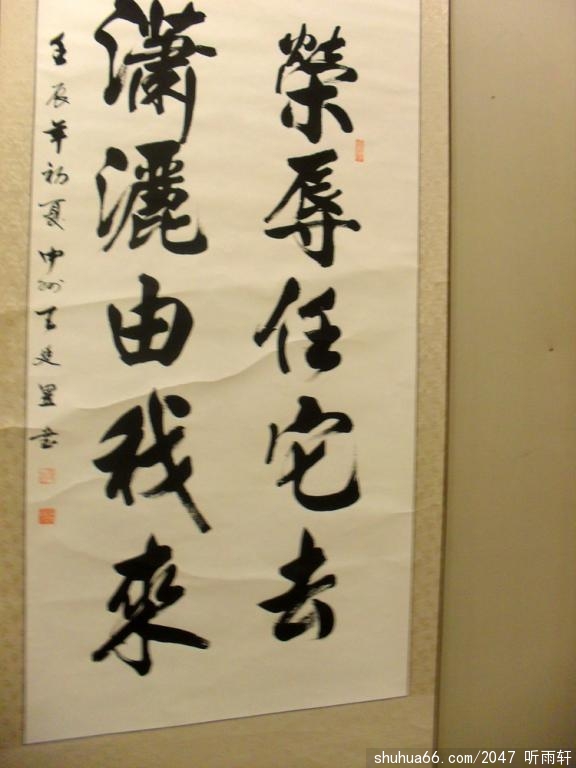 榮辱任它去
瀟灑由我來
壬辰年初夏中州王建墨书
shuhua66.com/2047 听雨轩